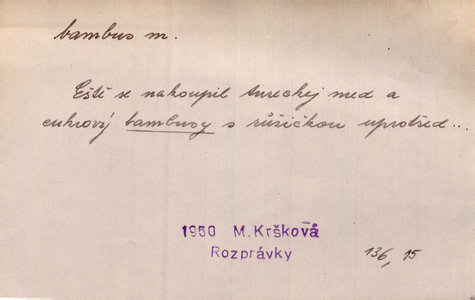 bambus m.
Eště se nakoupil tureckej med a
cukrový bambusy s růžičkou uprotřed...
1950 M. Kršková
Rozprávky
136, 15